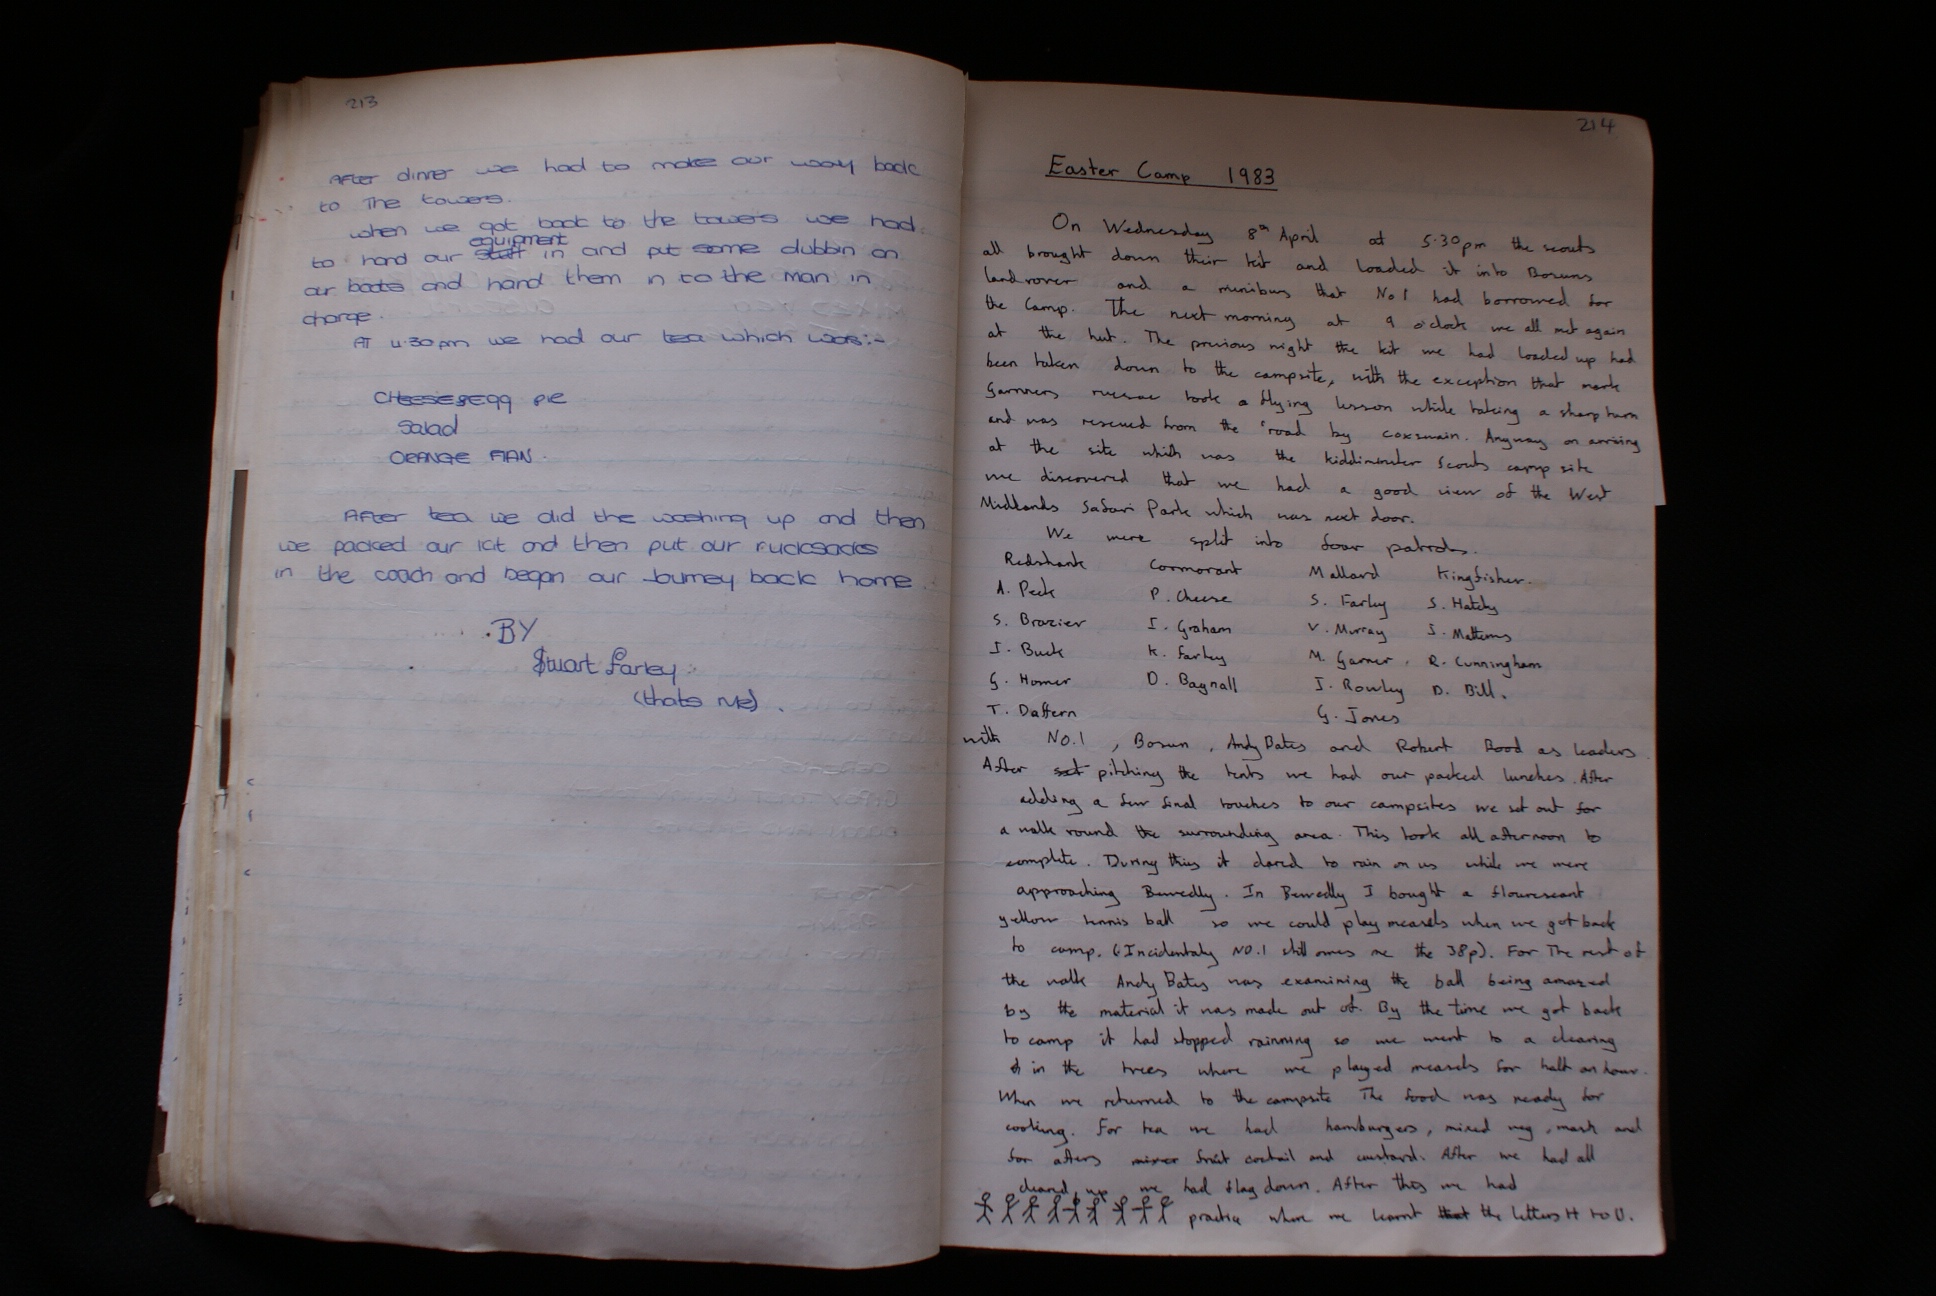 213
After dinner we had to make our way back
to The towers.
when we got back to the towers we had
equipment
to hand our stuff in and put some dubbin on
our boots and hand them in to the man in
charge.
AT 4.30pm we had our tea which was:-
CHeese egg pie
Salad
ORANGE FlAN.
After tea we did the washing up and then
we packed our kit and then put our rucksacks
in the coach and began our Journey back home.
BY
Stuart farley
(thats Me).
214
Easter Camp 1983
On Wednesday 8th April at 5.30pm the scouts
all brought down their kit and loaded it into Bosuns
landrover and a minibus that No 1 had borrowed for
the Camp. The next morning at 9 o'clock we all met again
at the hut. The previous night the kit we had loaded up had
been taken down to the campsite, with the exception that mark
Garners rucsac took a flying lesson while taking a sharp turn
and was rescued from the road by coxswain. Anyway on arriving
at the site which was the kidderminster Scouts camp site
we discovered that we had a good view of the West
Midlands Safari Park which was next door.
We were split into four patrols.
Redshank Cormorant Mallard Kingfisher.
A. Peck P. Cheese S. Farley S. Hatchy
S. Brazier I. Graham V. Murray J. Mattems
J. Buck K. Farley M. Garner. R. Cunningham
G. Homer D. Bagnall J. Rowley D. Bill.
T. Daffern G. Jones
with NO.1, Bosun, Andy Bates and Robert Rood as leaders.
After set pitching the tents we had our packed lunches. After
adding a few final touches to our campsites we set out for
a walk round the surrounding area. This took all afternoon to
complete. During this it dared to rain on us while we were
approaching Bewdley. In Bewedly I bought a flourescant
yellow tennis ball so we could play measels when we got back
to camp. (Incidentaly NO.1 still owes me the 38p). For The rest of
the walk Andy Bates was examining the ball being amazed
by the material it was made out of. By the time we got back
to camp it had stopped rainning so we went to a clearing
in the trees where we played measels for half an hour.
When we returned to the campsite The food was ready for
cooking. For tea we had hamburgers, mixed veg, mash and
for afters mixer fruit coctail and custard. After we had all
cleared up we had flag down. After this we had
practice where we learnt that the letters H to U.